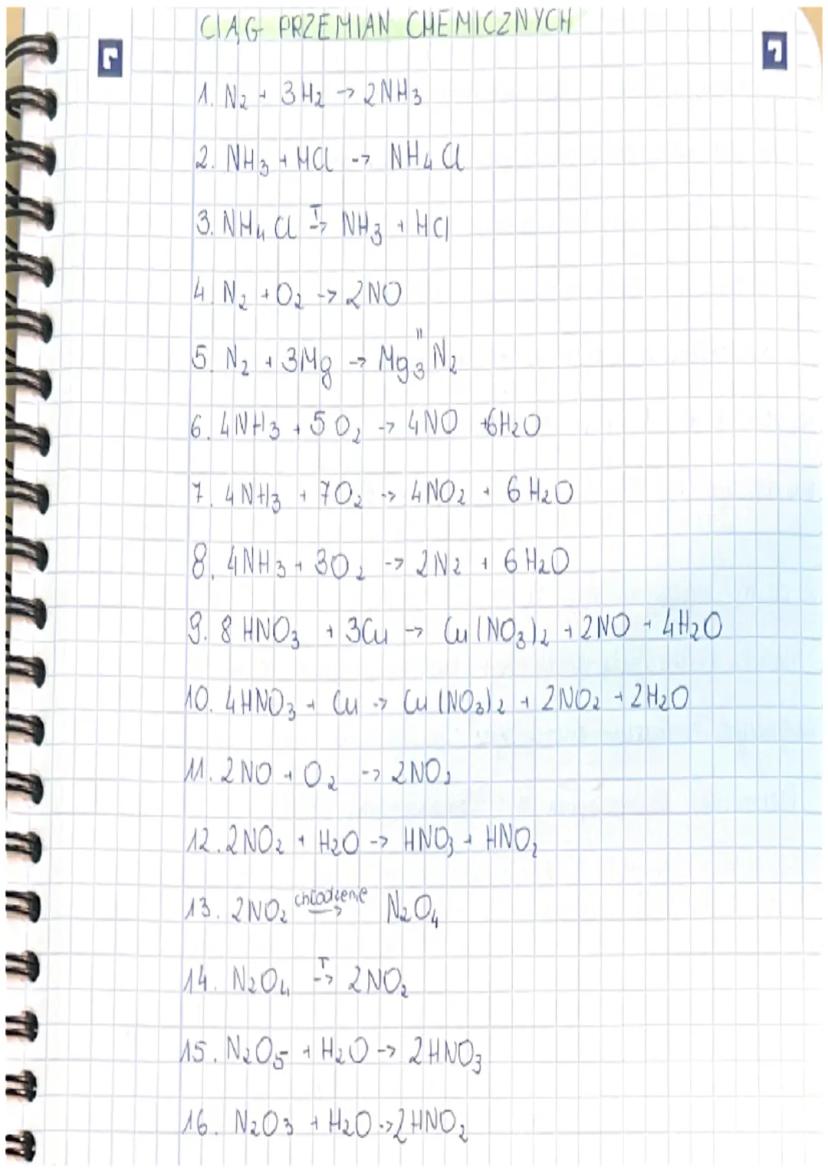 CIĄG PRZEMIAN CHEMICZNYCH
1. N₂ + 3H₂ -> 2NH₃
2. NH₃ + HCl -> NH₄Cl
3. NH₄Cl T-> NH₃ + HCl
4. N₂ + O₂ -> 2NO
5. N₂ + 3Mg -> Mg₃ᴵᴵN₂
6. 4NH₃ + 5O₂ -> 4NO +6H₂O
7. 4NH₃ + 7O₂ -> 4NO₂ + 6H₂O
8. 4NH₃ + 3O₂ -> 2N₂ + 6H₂O
9. 8HNO₃ + 3Cu -> Cu(NO₃)₂ + 2NO + 4H₂O
10. 4HNO₃ + Cu -> Cu(NO₃)₂ + 2NO₂ + 2H₂O
11. 2NO + O₂ -> 2NO₂
12. 2NO₂ + H₂O -> HNO₃ + HNO₂
13. 2NO₂ chłodzenie -> N₂O₄
14. N₂O₄ T-> 2NO₂
15. N₂O₅ + H₂O -> 2HNO₃
16. N₂O₃ + H₂O -> 2HNO₂